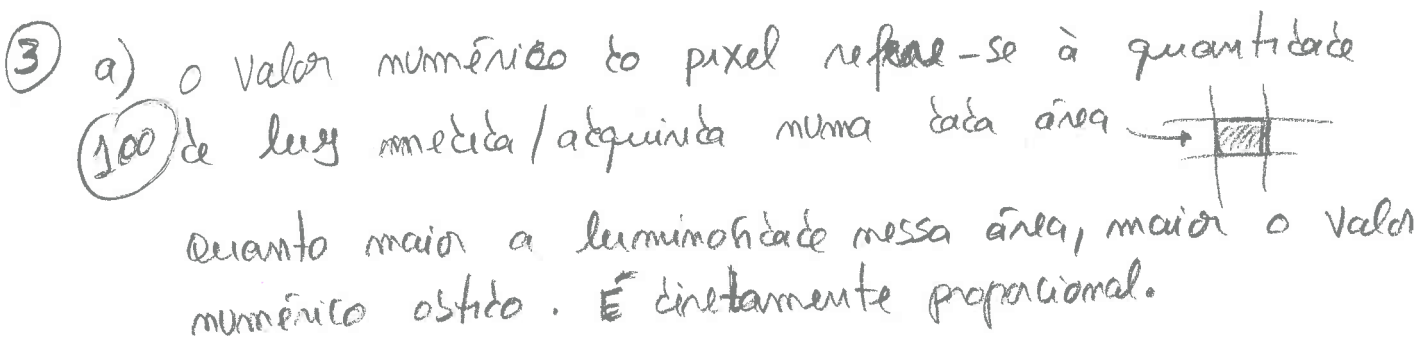 3 a) o valor numérico do pixel refere-se à quantidade
100 de luz medida/adquirida numa dada área
Quanto maior a luminosidade nessa área, maior o valor
numérico obtido. É diretamente proporcional.